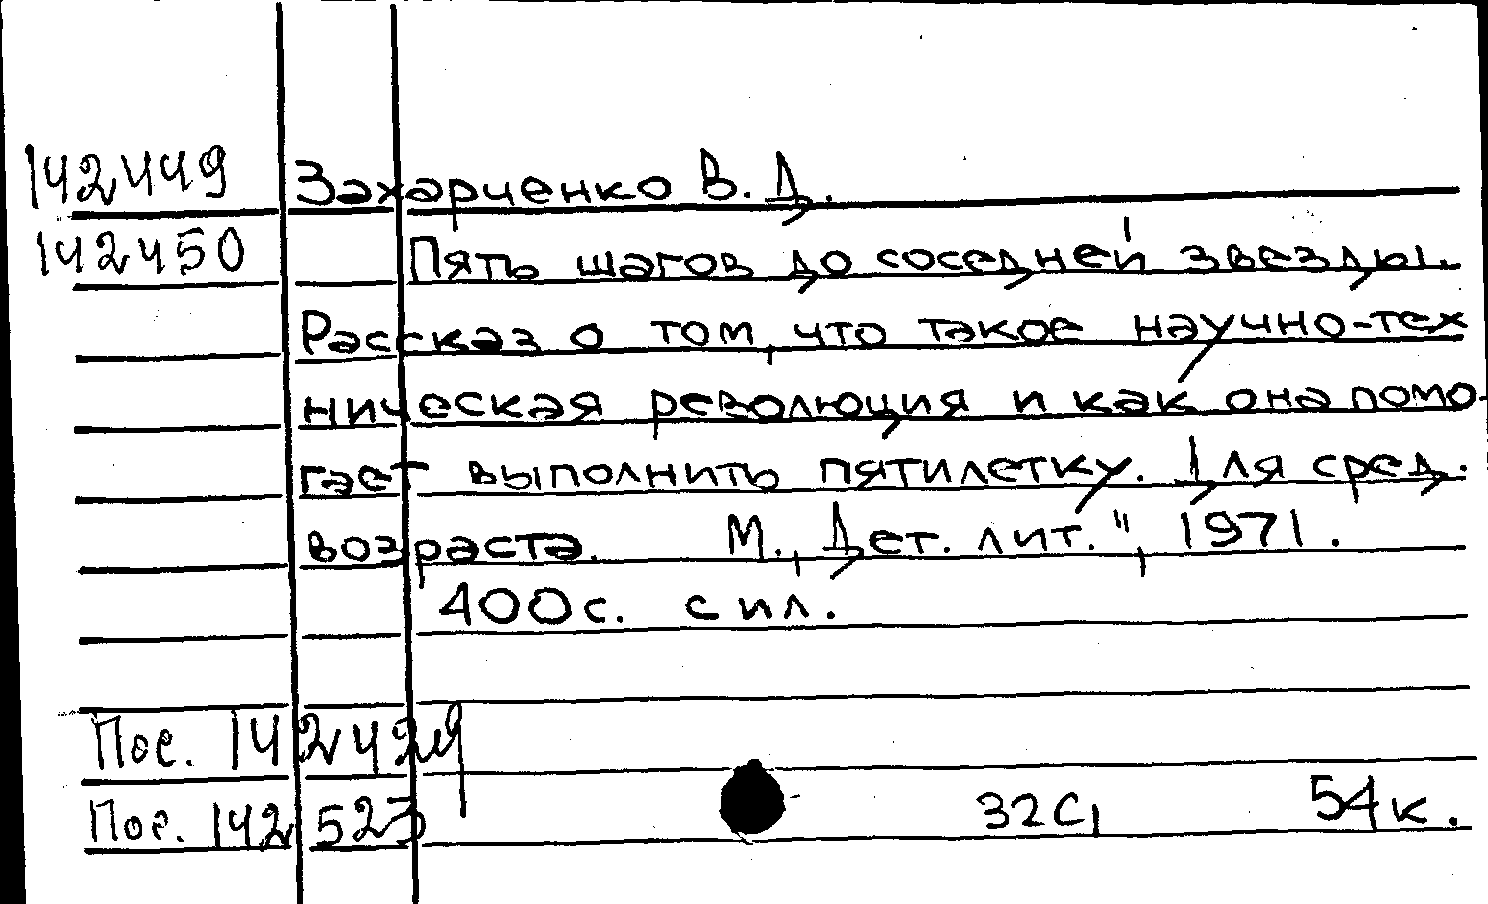 142449 Захарченко В. Д.
142450 Пять шагов до соседней звезды.
Рассказ о том, что такое научно-тех
ническая революция и как она помо-
гает выполнить пятилетку. Для сред.
возраста. М., „Дет. лит.", 1971.
400с. с ил.
Пос. 142429
Пос. 142523 32С1 54к.